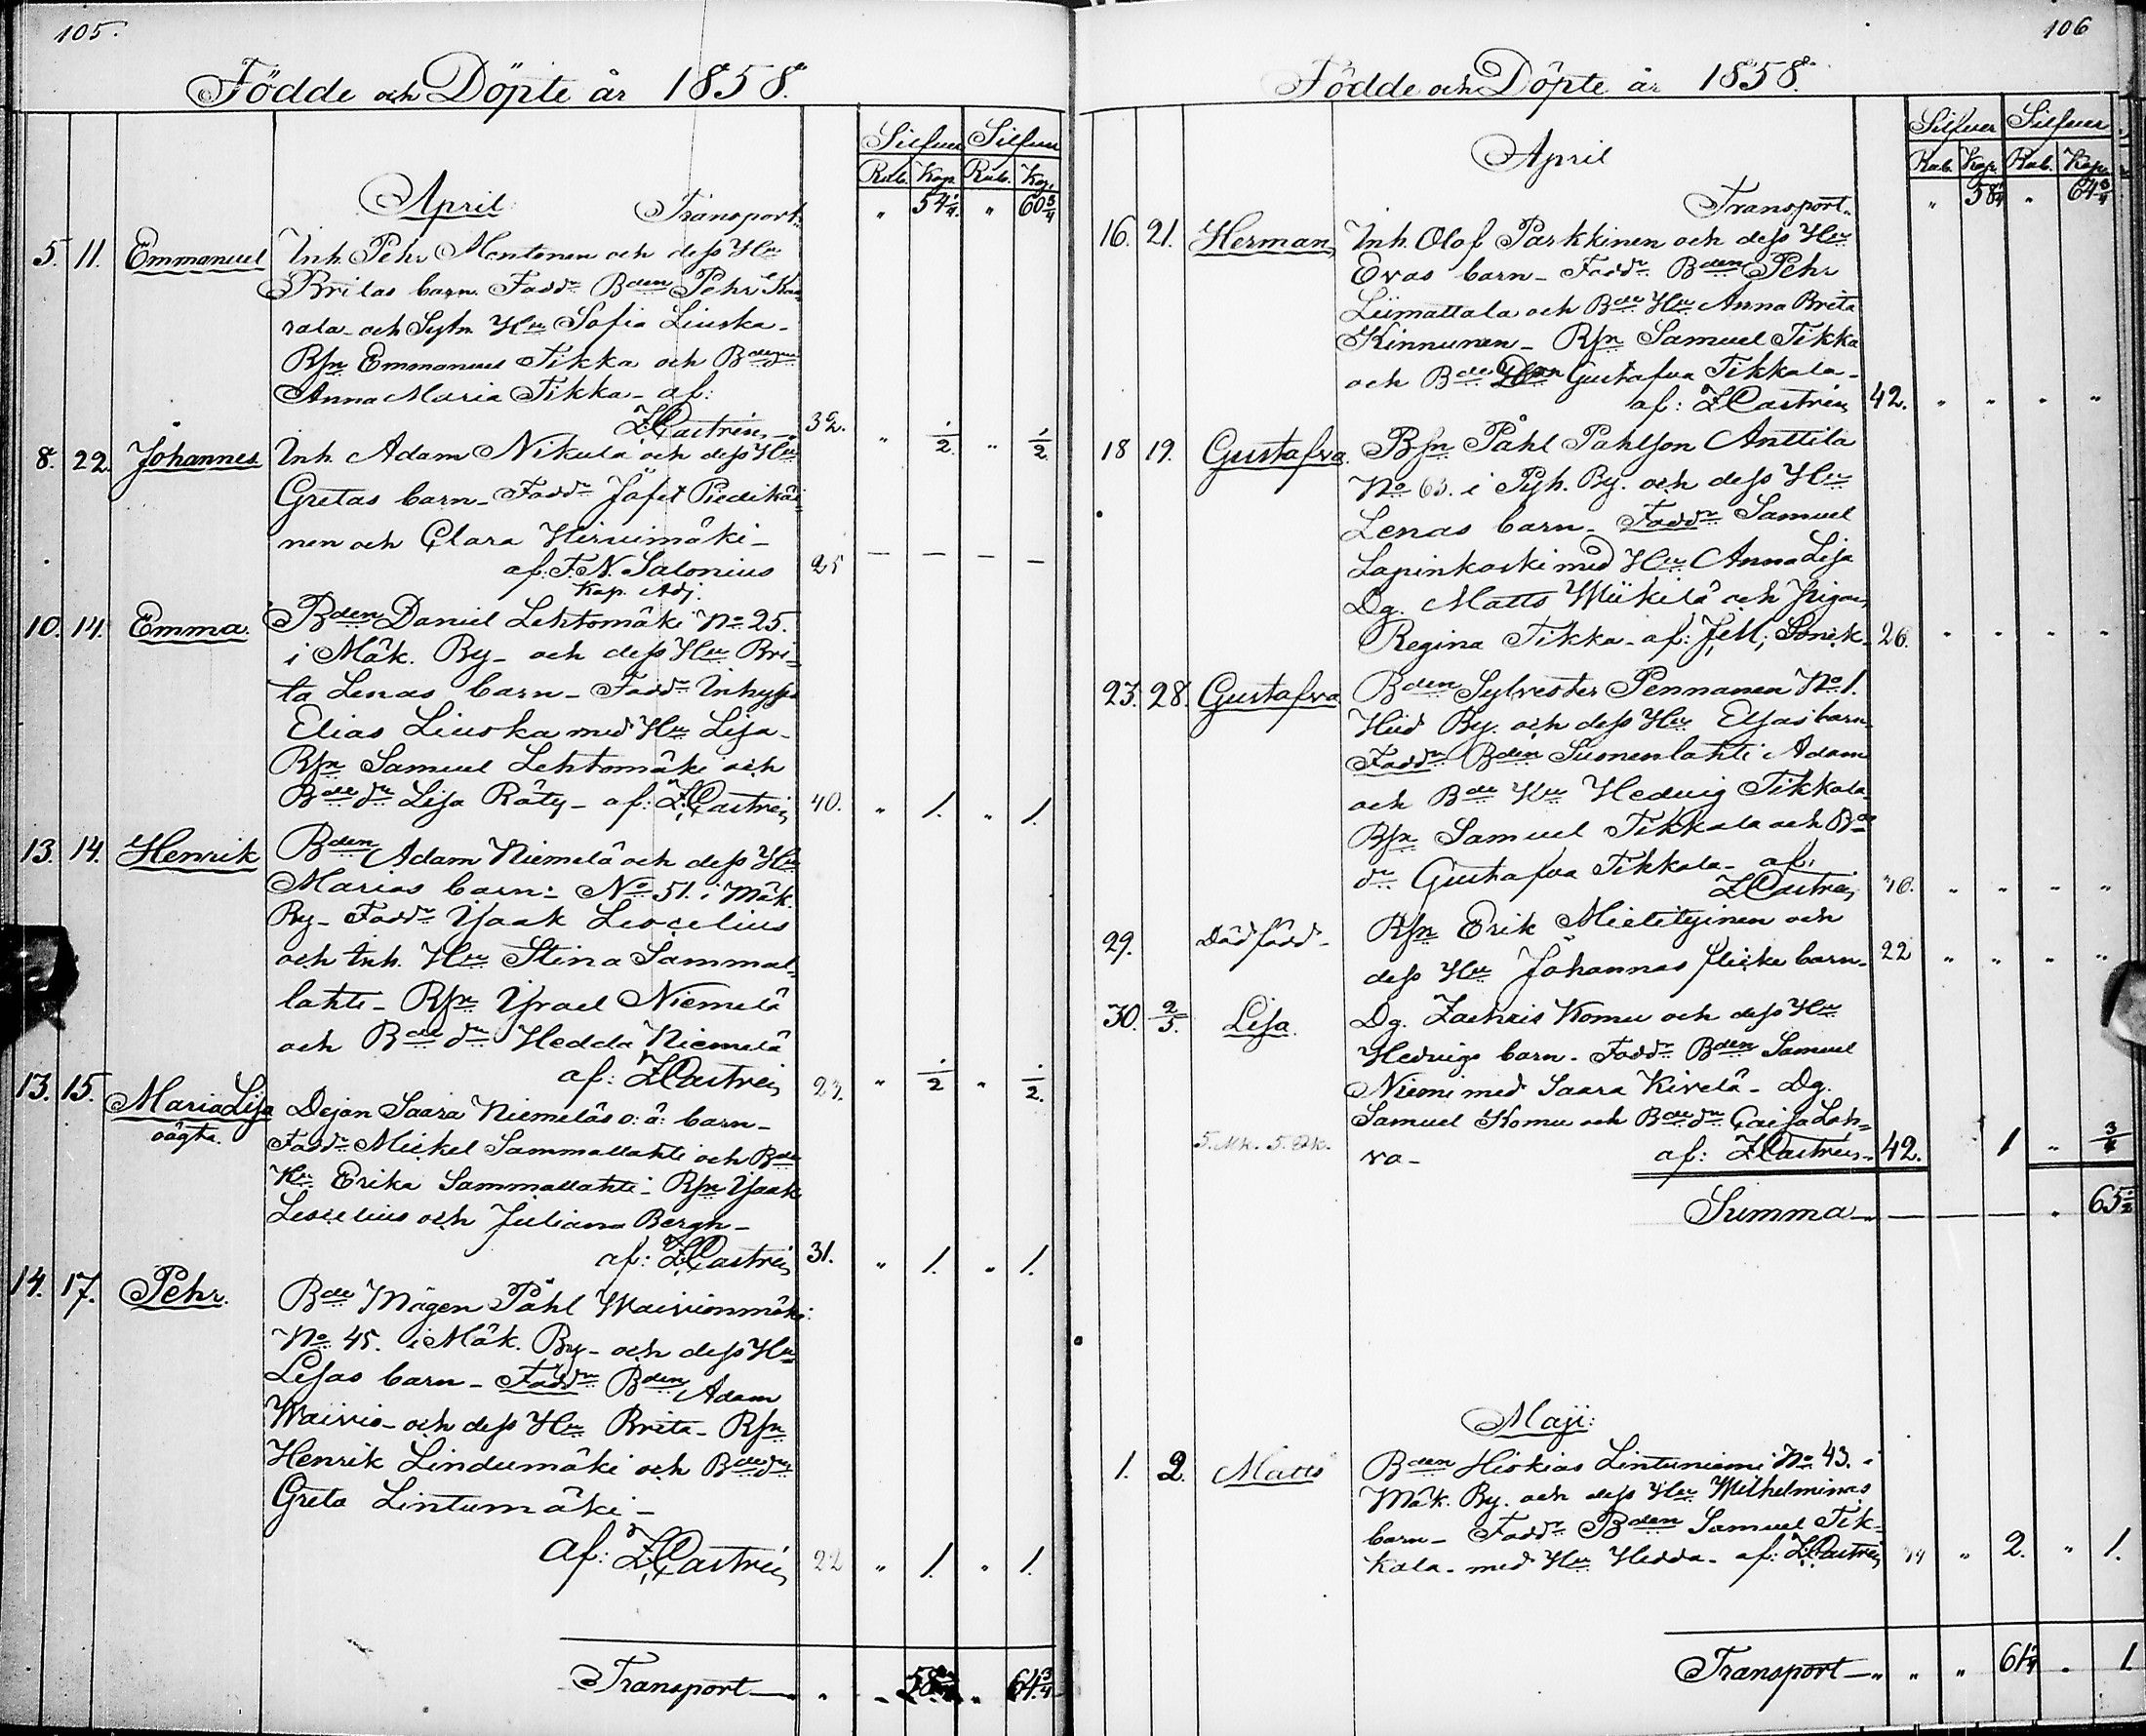 105.
Födde och Döpte år 1858.
Silfver Silfver
Rub. Kop. Rub. Kop.
April Transport. " 54 1/4. " 60 3/4
5. 11. Emmanuel Inh. Pehr Montonen och dess Hu
Britas barn. Faddr Bden Pehr
rala och Sytn Hu Sofia Liuska-
Rsn Emmanuel Tikka och
Anna Maria Tikka- af:
Z. Castrén 32. " 1/2. " 1/2
8. 22. Johannes Inh. Adam Nikula och dess Hu
Gretas barn- Faddr Jåfet Piedikäi
nen och Clara Hirvimäki-
af: F. N. Salonius 25 — — — —
Kap. Adj.
10. 14. Emma. Bden Daniel Lehtomäki No 25.
i Mäk. By- och dess Hu Bri-
ta Lenas barn- Faddr Inhyss
Elias Liuska med Hu Lisa-
Rsn Samuel Lehtomäki och
Bde dr Lisa Räty- af: Z. Castrén 40. " 1. " 1.
13. 14. Henrik Bden Adam Niemelä och dess Hu
Marias barn: No 51. i Mäk.
By- Faddr Isaak Leocelius
och Inh. Hu Stina Sammal-
lahti- Rsn Israel Niemelä
och Bde dr Hedda Niemelä
af: Z. Castrén 23. " 1/2 " 1/2.
13. 15. Maria Lisa Dejan Saara Niemeläs o: ä: barn-
oägta. Faddr Mickel Sammallahti och Bde
Hu Erika Sammallahti- Rsn Isaak
Leocelius och Juliana Bergh-
af: Z. Castrén 31. " 1. " 1.
14. 17. Pehr. Bde Mågen Påhl Waivionmäki:
No 45. i Mäk. By- och dess Hu
Lisas barn- Faddr Bden Adam
Waivio- och dess Hu Brita- Rsn
Henrik Lindumäki och Bde dr
Greta Lintumäki-
af: Z. Castrén 22 " 1. " 1.
Transport— " " 58 1/4 " 64 3/4
106
Födde och Döpte år 1858.
Silfver Silfver
Rub. Kop. Rub. Kop.
April
Transport. " 58 1/4 " 64 3/4
16. 21. Herman Inh. Olof Parkkinen och dess Hu
Evas barn- Faddr Bden Pehr
Liimattala och Bde Hu Anna Brita
Kinnunen- Rsn Samuel Tikka
och Bde Gustafva Tikkala-
af: Z. Castrén 42. " " " "
18 19. Gustafva. Bsn Påhl Pahlson Anttila
No 63. i Pyh. By. och dess Hu
Lenas barn- Faddr Samuel
Lapinkoski med Hu Anna Lisa
Dg. Matts Wiikilä och Pigan
Regina Tikka- af: J. M. 26. " " " "
23. 28. Gustafva Bden Sylvester Pennanen No 1.
Hiid By. och dess Hu Elsas barn-
Faddr Bden Suonenlahti Adam
och Bde Hu Hedvig Tikkala-
Rsn Samuel Tikkala och Bde
dr Gustafva Tikkala- af:
Z. Castrén " " " "
29. Dödfödd- Rsn Erik Mietityinen och
dess Hu Johannas flicke barn- 22 " " " "
30. 2/5. Lisa. Dg. Zachris Komu och dess Hu
Hedvigs barn- Faddr Bden Samuel
Niemi med Saara Kivelä- Dg.
Samuel Komu och Bde dr Caisa Lah-
5. Mk. 5. Qk. va- af: Z. Castrén- 42. 1 " 3/4
Summa- — — — " 65 1/2
Maji:
1. 2. Matts Bden Hiskias Lintuniemi No 43. i
Mäk. By. och dess Hu Wilhelminas
barn- Faddr Bden Samuel Tik-
kala- med Hu Hedda- af: Z. Castrén " 2. " 1.
Transport— " " " 61 1/4 " 1.